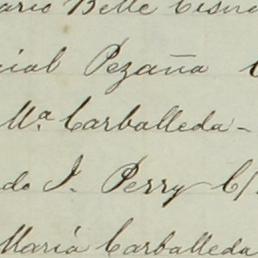 ario Belle Cisn
cial Pezaña C
Mª Carballeda -
do J. Perry C/
Maria Carballeda